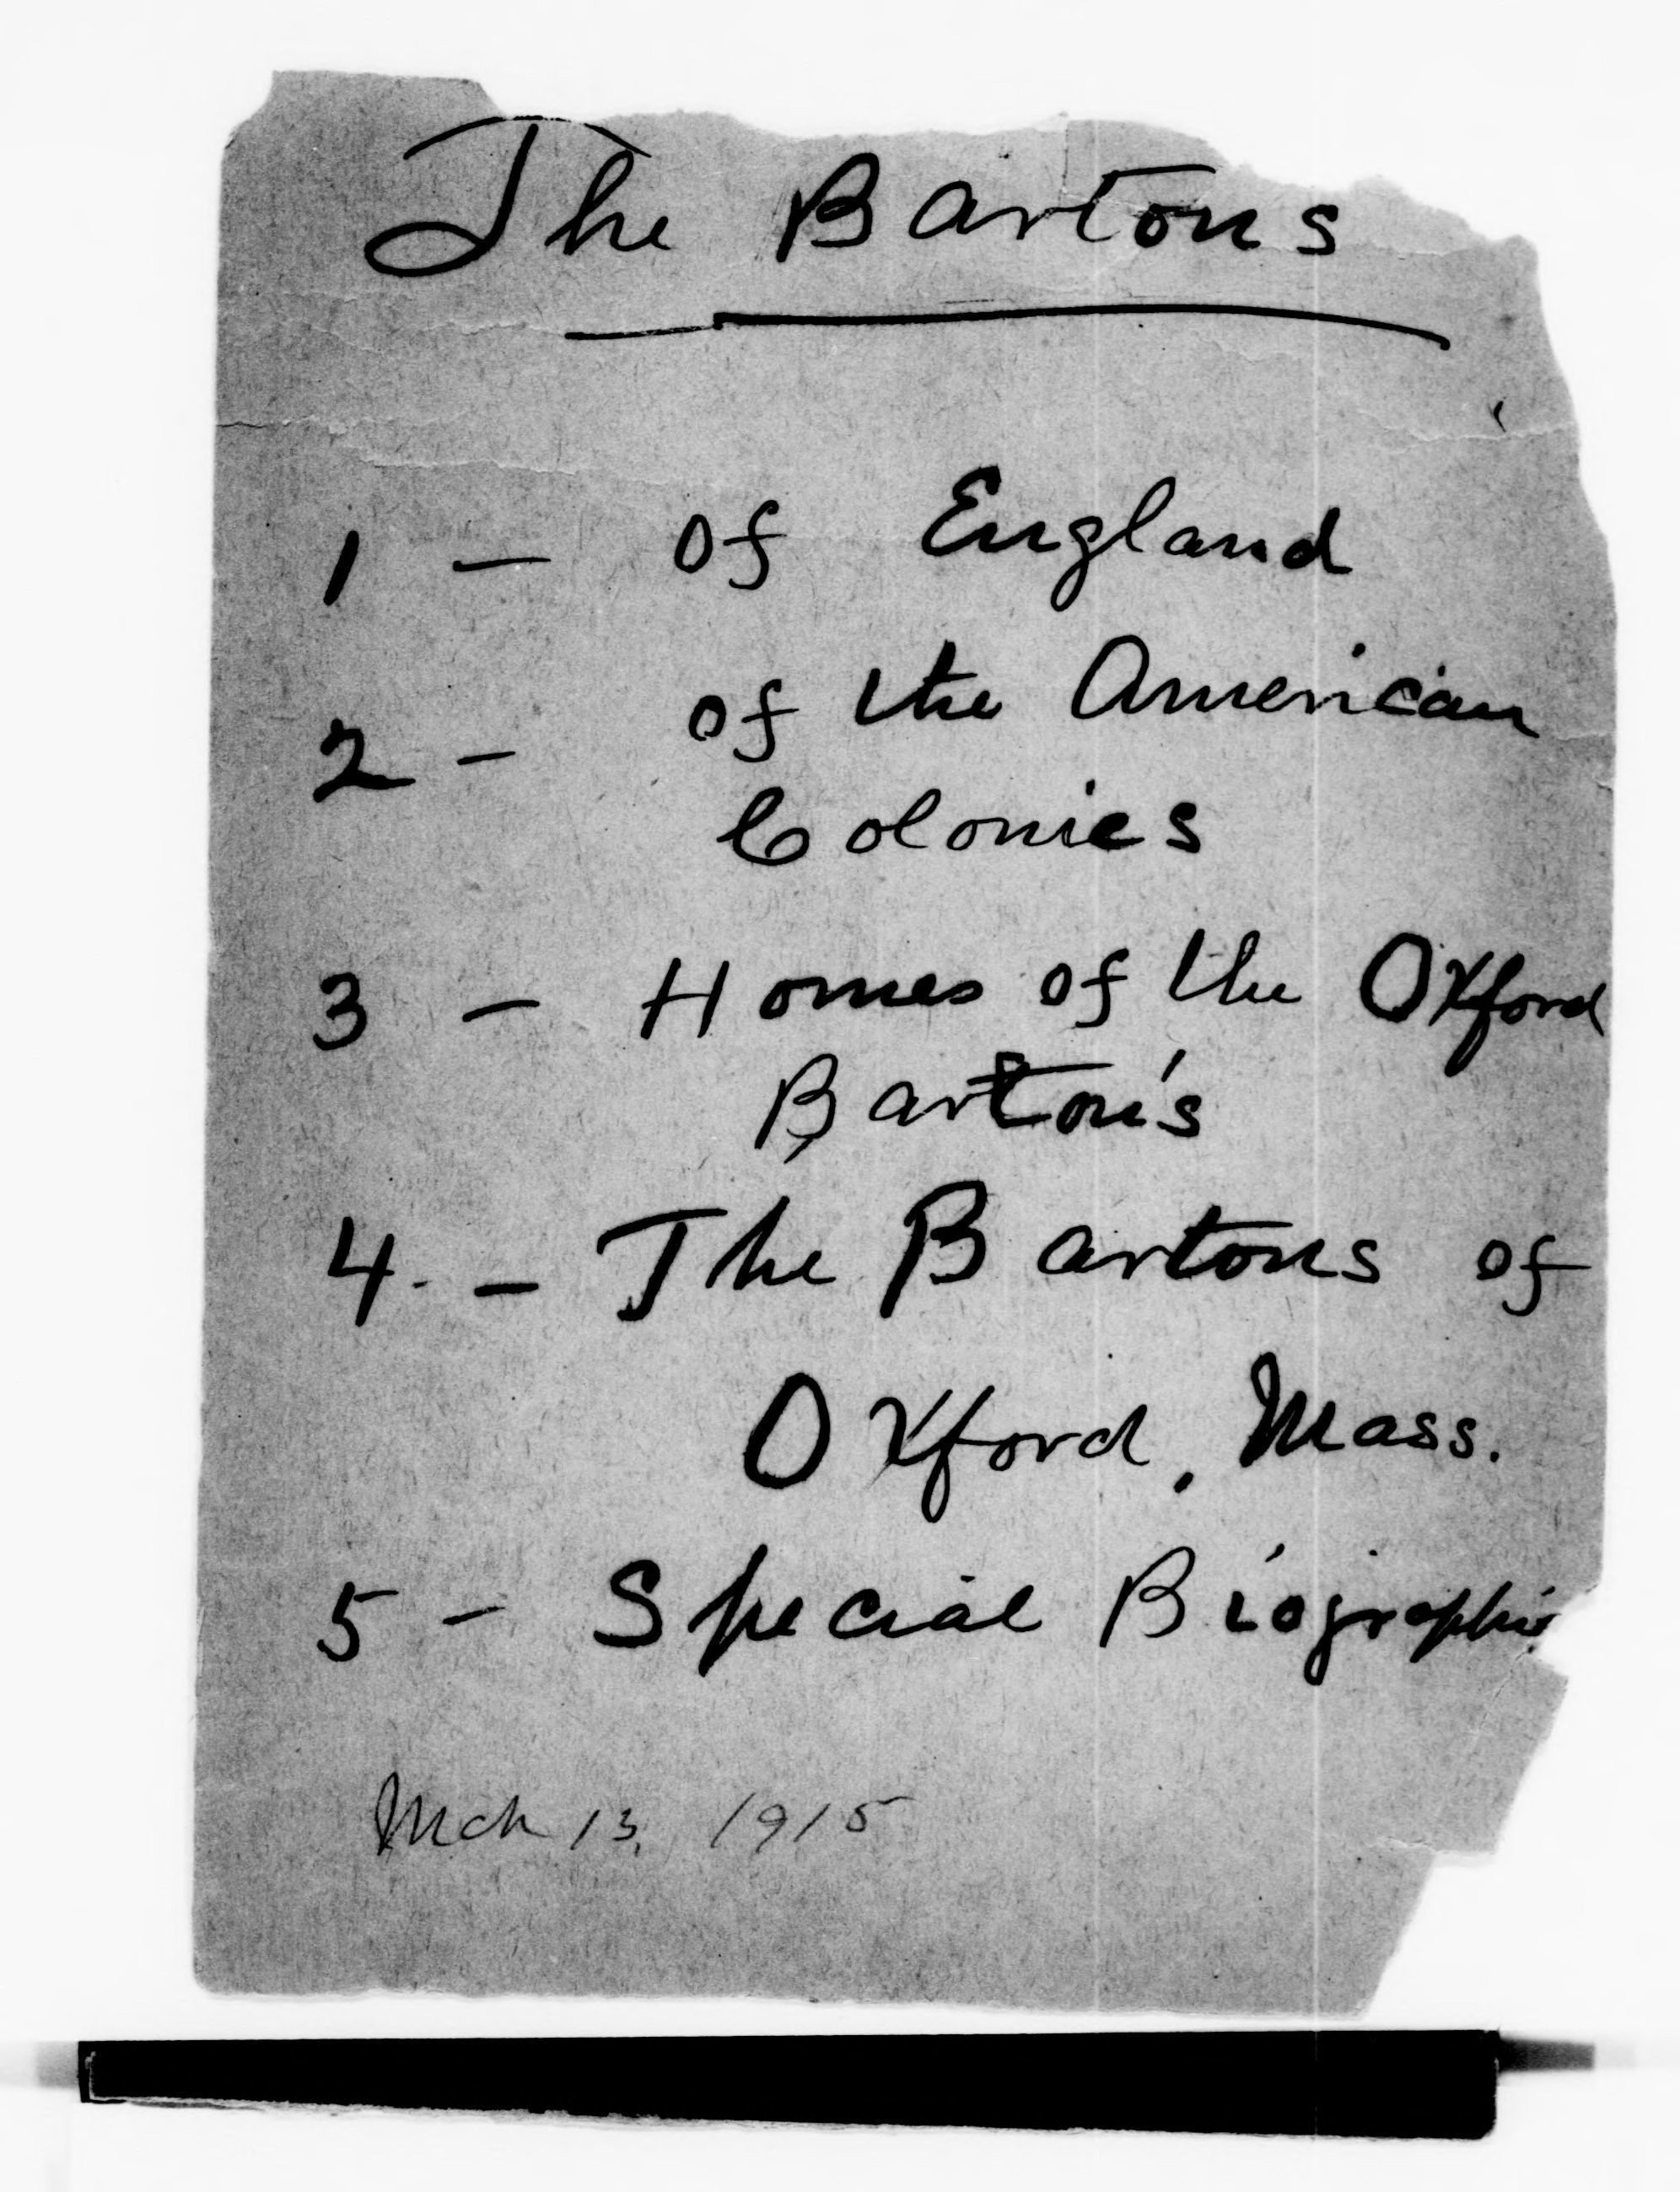 The Bartons
1 - Of England
2 - of the American
Colonies
3 - Homes of the Oxford
Barton's
4. - The Bartons of
Oxford, Mass.
5 - Special Biographi
Mch 13, 1915